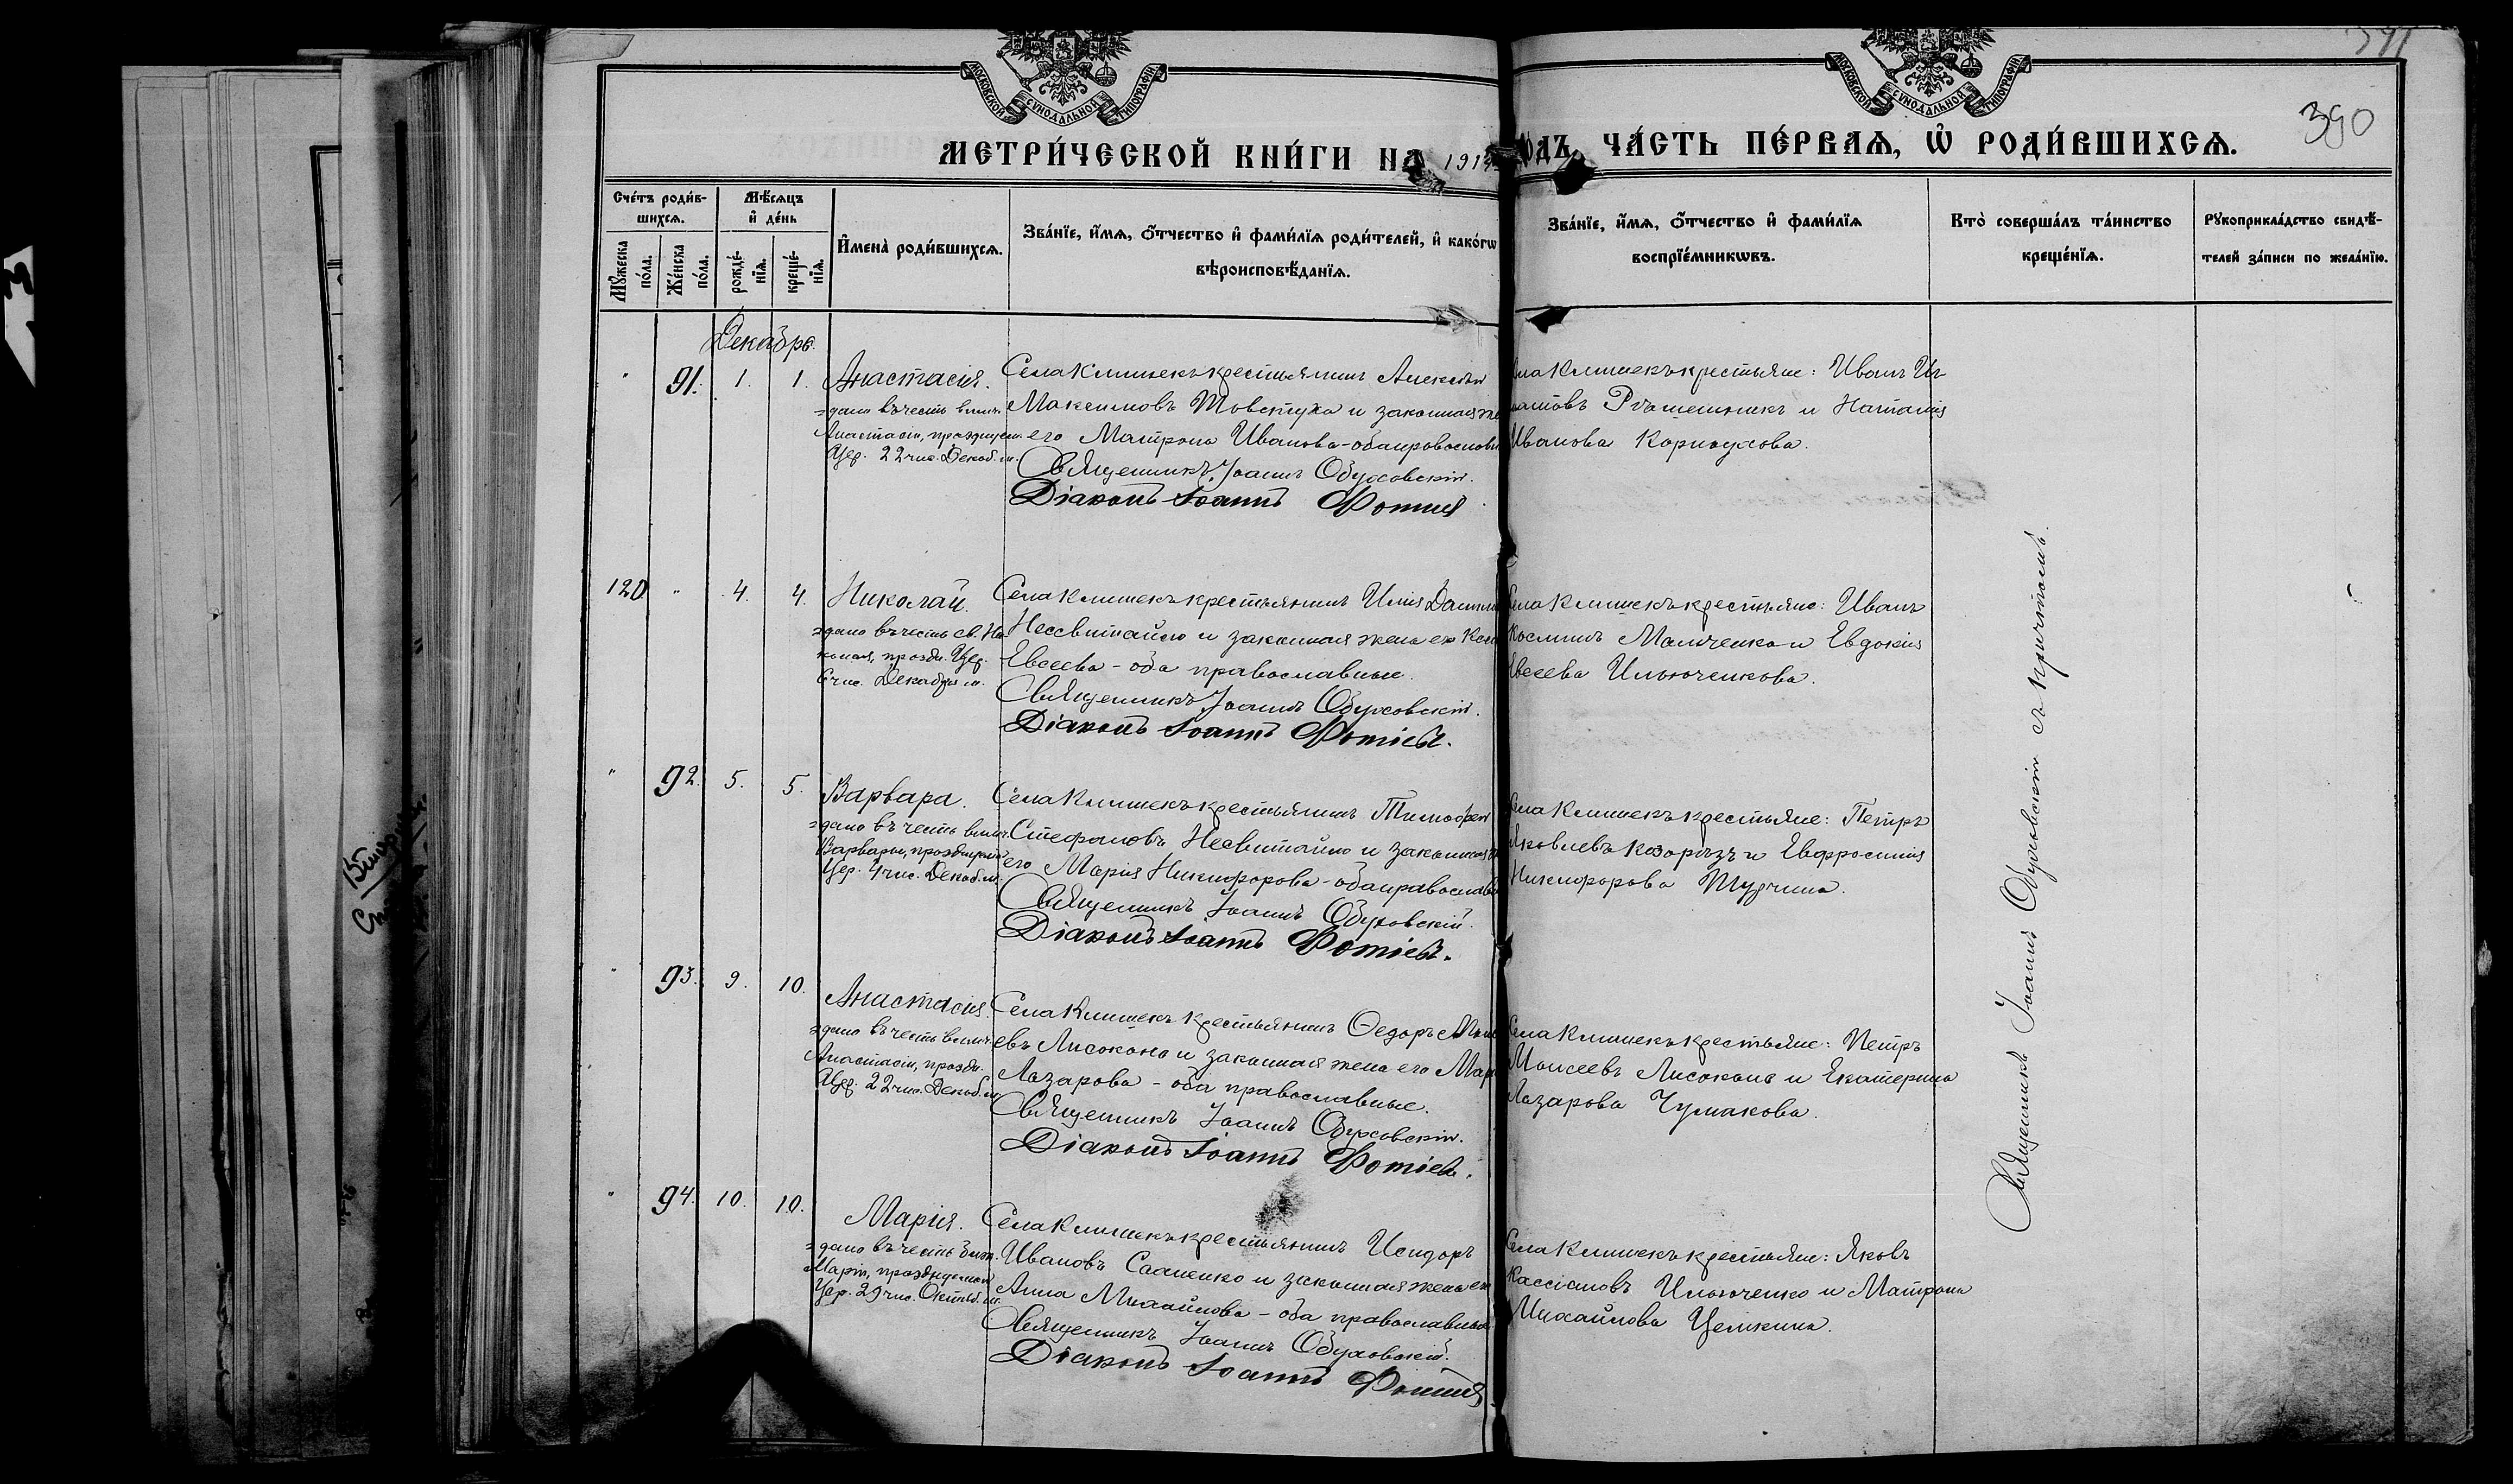 МОСКОВСКОЙ СѴНОДАЛЬНОЙ ТИПОГРАФІИ
МОСКОВСКОЙ СѴНОДАЛЬНОЙ ТИПОГРАФІИ
390
МЕТРИ́ЧЕСКОЙ КНИ́ГИ НА 191
ОДЪ, ЧА́СТЬ ПЕ́РВАѦ, Ѽ РОДИ́ВШИХСѦ.
Сче́тъ роди́в-
шихсѧ.
Мꙋ́жеска по́ла.
Же́нска по́ла.
Мѣ́сѧцъ
и҆ де́нь
рожде́-нїѧ.
креще́-нїѧ.
И҆мена̀ роди́вшихсѧ.
Зва́нїе, и҆́мѧ, ѻ҆́тчество и҆ фами́лїѧ роди́телей, и҆ како́гѡ
вѣроисповѣ́данїѧ.
Зва́нїе, и҆́мѧ, ѻ҆́тчество и҆ фами́лїѧ
воспрїе́мникѡвъ.
Кто̀ соверша́лъ та́инство
креще́нїѧ.
Рꙋкоприкла́дство свидѣ́-
телей за́писи по жела́нїю.
Декабрь.
" 91. 1. 1. Анастасія.
=дано въ честь велм.
Анастасіи, празднуем.
Цер. 22 чис. Декаб. м.
Села Клишекъ крестьянинъ Алексѣй
Максимовъ Товстуха и законная же
его Матрона Иванова - оба православн
Священникъ Іоаннъ Обуховскій.
Діаконъ Іоаннъ Фотіев
ела Клишекъ крестьяне: Иванъ Иг-
натовъ и Наталія
Иванова Карпоухова.
120 " 4. 4. Николай.
=дано въ честь св. Ни-
колая, праздн. Цер.
6 чис. Декабря м.
Села Клишекъ крестьянинъ Илія Данил
Несвитайло и законная жена его Ксен
Евсеева - оба православные.
Священникъ Іоаннъ Обуховскій.
Діаконъ Іоаннъ Фотіев.
Села Клишекъ крестьяне: Иванъ
Косминъ Мальченко и Евдокія
Евсеева Ильюченкова.
" 92. 5. 5. Варвара.
=дано въ честь велм.
Варвары, празднуемой
Цер. 4 чис. Декаб. м.
Села Клишекъ крестьянинъ Тимофей
Стефановъ Несвитайло и законная
его Марія Никифорова - оба православн
Священникъ Іоаннъ Обуховскій.
Діаконъ Іоаннъ Фотіев.
Села Клишекъ крестьяне: Петръ
Яковлевъ Козорѣзъ и Евфросинія
Никифорова
" 93. 9. 10. Анастасія.
=дано въ честь велм.
Анастасіи, праздн.
Цер. 22 чис. Декаб. м.
Села Клишекъ крестьянинъ Ѳедоръ Мои
евъ Лисоконь и законная жена его Мар
Лазарова - оба православные.
Священникъ Іоаннъ Обуховскій.
Діаконъ Іоаннъ Фотіев.
Села Клишекъ крестьяне: Петръ
Моисеевъ Лисоконь и Екатерина
Лазарова Чумакова.
" 94. 10. 10. Марія.
=дано въ честь
Маріи, празднуемой
Цер. 29 чис. Октяб. м.
Села Клишекъ крестьянинъ Исидоръ
Ивановъ Саченко и законная жена его
Анна Михайлова - оба православные
Священникъ Іоаннъ Обуховскій.
Діаконъ Іоаннъ Фотіев
Села Клишекъ крестьяне: Яковъ
Кассіановъ Ильюченко и Матрона
Михайлова
Священникъ Іоаннъ Обуховскій съ причтомъ.